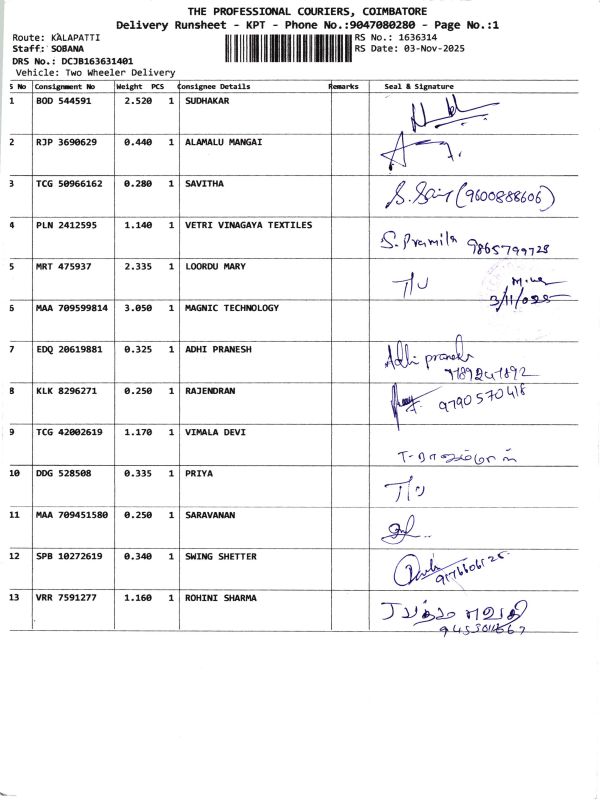 THE PROFESSIONAL COURIERS, COIMBATORE
Delivery Runsheet - KPT - Phone No.:9047080280 - Page No.:1
Route: KALAPATTI
RS No.: 1636314
Staff: SOBANA
RS Date: 03-Nov-2025
DRS No.: DCJB163631401
Vehicle: Two Wheeler Delivery
S No Consignment No Weight PCS Consignee Details Remarks Seal & Signature
1 BOD 544591 2.520 1 SUDHAKAR
2 RJP 3690629 0.440 1 ALAMALU MANGAI
3 TCG 50966162 0.280 1 SAVITHA (9600888606)
4 PLN 2412595 1.140 1 VETRI VINAGAYA TEXTILES S. Pramila 9865799728
5 MRT 475937 2.335 1 LOORDU MARY T/U
3/11/025
6 MAA 709599814 3.050 1 MAGNIC TECHNOLOGY
7 EDQ 20619881 0.325 1 ADHI PRANESH Adhi pranesh
8 KLK 8296271 0.250 1 RAJENDRAN 9790570418
9 TCG 42002619 1.170 1 VIMALA DEVI
10 DDG 528508 0.335 1 PRIYA T/U
11 MAA 709451580 0.250 1 SARAVANAN
12 SPB 10272619 0.340 1 SWING SHETTER
13 VRR 7591277 1.160 1 ROHINI SHARMA